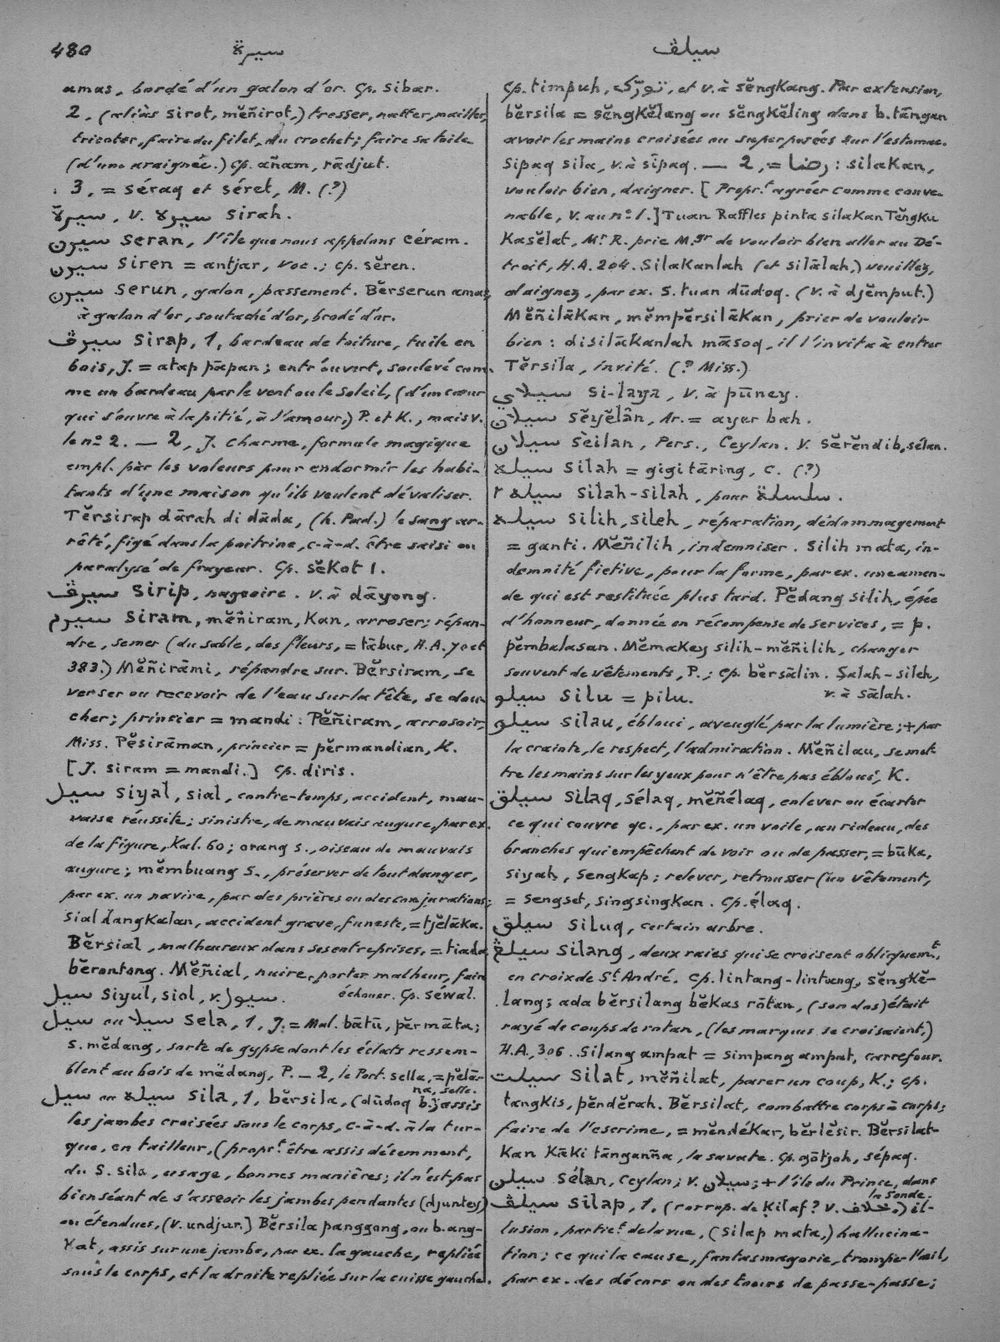 480
سيرة
سيلف
amas, bordé d'un galon d'or. Cp. sibar.
2, (aliàs sirot, měñirot,) tresser, natter, mailler,
tricoter, faire du filet, du crochet; faire sa toile
(d'une araignée.) Cp. añam, rādjut.
3, = séraq et séret, M. (?)
سيرة, v. سيره sirah.
سيرن seran, l'île que nous appelons céram.
سيرن siren = antjar, voc.; cp. sĕren.
سيرن serun, galon, passement. Bĕrserun amas,
à galon d'or, soutaché d'or, brodé d'or.
سيرف sirap, 1, bardeau de toiture, tuile en
bois, J. = atap pāpan; entr'ouvert, soulevé com-
me un bardeau par le vent ou le soleil, (d'un cœur
qui s'ouvre à la pitié, à l'amour,) P. et K., mais v.
le nº 2. — 2, J. charme, formule magique
empl. par les voleurs pour endormir les habi-
tants d'une maison qu'ils veulent dévaliser.
Tĕrsirap dārah di dāda, (h. Pad.) le sang ar-
rêté, figé dans la poitrine, c-à-d. être saisi ou
paralysé de frayeur. Cp. sĕkot 1.
سيرف sirip, nageoire. v. à dāyong.
سيرم siram, měñiram, kan, arroser; répan-
dre, semer (du sable, des fleurs, = tābur, H.A. 70 et
383.) Mĕñirāmi, répandre sur. Bĕrsiram, se
verser ou recevoir de l'eau sur la tête, se dou-
cher; princier = mandi: Pĕñiram, arrosoir,
Miss. Pĕsirāman, princier = pĕrmandian, K.
[J. siram = mandi.] cp. diris.
سيل siyal, sial, contre-temps, accident, mau-
vaise réussite; sinistre, de mauvais augure, par ex.
de la figure, Kal. 60; orang s., oiseau de mauvais
augure; mĕmbuang s., préserver de tout danger,
par ex. un navire, par des prières ou des conjurations;
sial dangkalan, accident grave, funeste, = tjĕlāka.
Bĕrsial, malheureux dans ses entreprises, = tiada
bĕrontong. Mĕñial, nuire, porter malheur, faire
échouer. Cp. séwal.
سيل siyul, siol, v. سيول.
سيل ou سيلا sela, 1, J. = Mal. bātū, pĕrmāta;
s. mĕdang, sorte de gypse dont les éclats ressem-
blent au bois de mĕdang, P. — 2, le Port. sella, = pĕlā-
na, selle.
سيل ou سيله sila, 1, bĕrsila, (dūdoq b.) assis
les jambes croisées sous le corps, c-à-d. à la tur-
que, en tailleur, (propr.t être assis décemment,
du S. sila, usage, bonnes manières; il n'est pas
bienséant de s'asseoir les jambes pendantes (djuntey)
ou étendues, (v. undjur.) Bĕrsila panggong, ou b. ang-
kat, assis sur une jambe, par ex. la gauche, repliée
sous le corps, et la droite repliée sur la cuisse gauche.
Cp. timpuh, et v. à sĕngkang. Par extension,
bĕrsila = sĕngkĕlang ou sĕngkĕling dans b. tāngan
avoir les mains croisées ou superposées sur l'estomac.
Sipaq sila, v. à sīpaq. — 2, = رضا: silakan,
vouloir bien, daigner. [Propr.t agréer comme conve-
nable, v. au nº 1.] Tuan Raffles pinta silakan Tĕngku
Kasĕlat, Mr R. prie Mgr de vouloir bien aller au Dé-
troit, H.A. 204. Silakanlah (et silālah,) veuillez,
daignez, par ex. s. tuan dūdoq. (v. à djĕmput.)
Mĕñilākan, mĕmpĕrsilākan, prier de vouloir
bien: disilākanlah māsoq, il l'invita à entrer
Tĕrsila, invité. (? Miss.)
سيلاي si-laya, v. à pūney.
سيلان sĕyĕlān, Ar. = ayer bah.
سيلان seilan, Pers., Ceylan. v. Sĕrĕndib, sélan.
سيله silah = gigi tāring, c. (?)
سيله ٢ silah-silah, pour سلسلة.
سيله silih, sileh, réparation, dédommagement
= ganti. Mĕñilih, indemniser. Silih mata, in-
demnité fictive, pour la forme, par ex. une amen-
de qui est restituée plus tard. Pĕdang silih, épée
d'honneur, donnée en récompense de services, = p.
pĕmbalasan. Mĕmakey silih-mĕñilih, changer
souvent de vêtements, P.; cp. bĕrsālin. Salah-sileh,
v. à sālah.
سيلو silu = pilu.
سيلو silau, ébloui, aveuglé par la lumière; + par
la crainte, le respect, l'admiration. Mĕñilau, se met-
tre les mains sur les yeux pour n'être pas ébloui, K.
سيلق silaq, sélaq, mĕñélaq, enlever ou écarter
ce qui couvre qc., par ex. un voile, un rideau, des
branches qui empêchent de voir ou de passer, = būka,
siyah, sengkap; relever, retrousser (un vêtement,
= sengset, singsingkan. Cp. élaq.
سيلق siluq, certain arbre.
سيلڠ silang, deux raies qui se croisent obliquem.t,
en croix de St André. Cp. lintang-lintung, sĕngkĕ-
lang; ada bĕrsilang bĕkas rōtan, (son dos) était
rayé de coups de rotan, (les marques se croisaient,)
H.A, 306. Silang ampat = simpang ampat, carrefour.
سيلت silat, mĕñilat, parer un coup, K.; cp.
tangkis, pĕndĕrah. Bĕrsilat, combattre corps à corps;
faire de l'escrime, = mĕndékar, bĕrlĕsir. Bĕrsilat-
kan kāki tānganña, la savate. Cp. gōtjoh, sépaq.
سيلن sélan, Ceylan; v. سيلان; + l'île du Prince, dans
la Sonde.
سيلف silap, 1, (corrop. de kilaf? v. خلاف.) il-
lusion, partic.t de la vue, (silap mata,) hallucina-
tion; ce qui la cause, fantasmagorie, tromper l'œil,
par ex. des décors ou des tours de passe-passe;